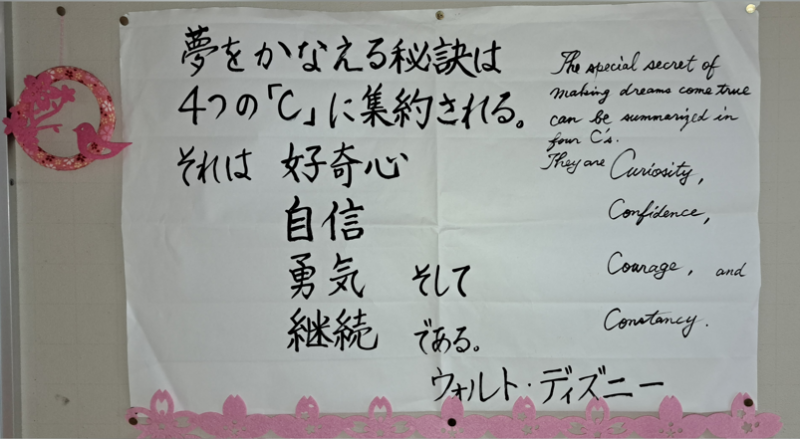 夢をかなえる秘訣は
4つの「C」に集約される。
それは 好奇心
自信
勇気 そして
継続 である。
ウォルト・ディズニー
The special secret of
making dreams come true
can be summarized in
four C's.
They are Curiosity,
Confidence,
Courage, and
Constancy.